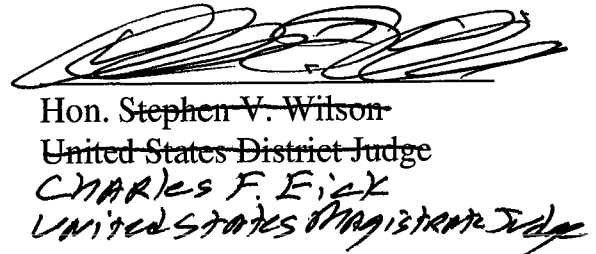 Hon. Stephen V. Wilson
United States District Judge
Charles F. Eick
United States Magistrate Judge